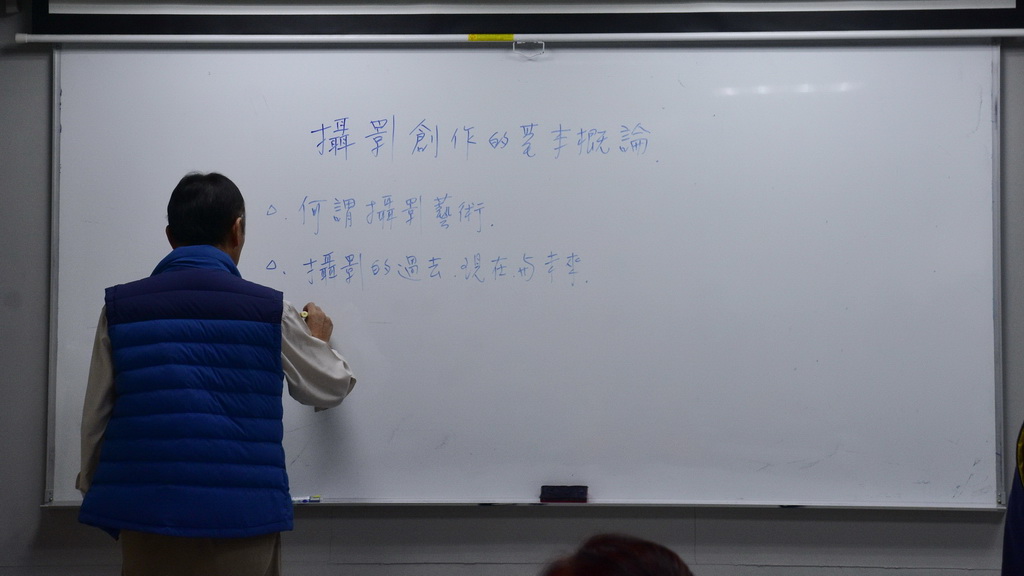 攝影創作的基本概論.
△. 何謂攝影藝術.
△. 攝影的過去.現在與未來.